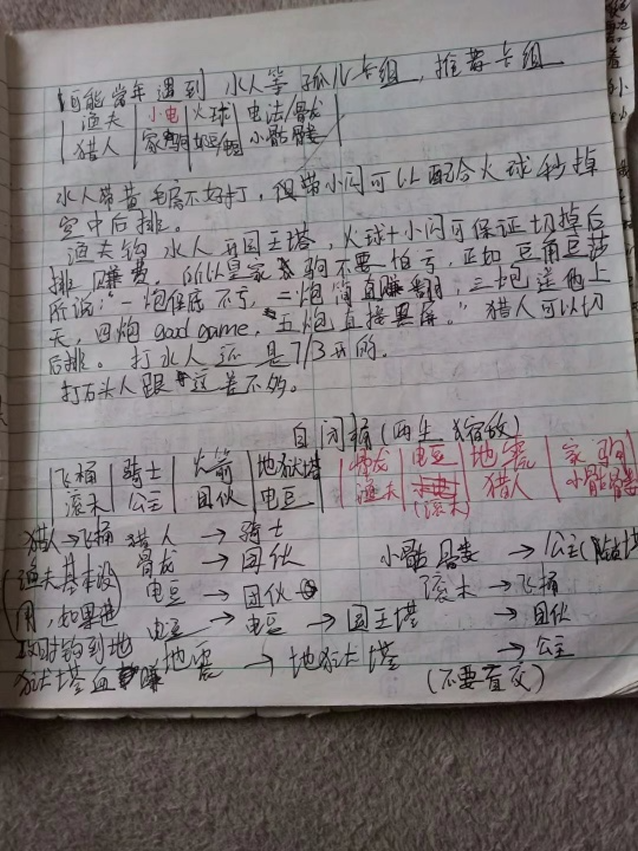 可能当年遇到 水人等孤儿卡组，推荐卡组
渔夫 小电 火球 电法/骨龙
猎人 家驹 小骷髅
水人带黄毛房不好打，但带小闪可以配合火球秒掉
空中后排。
渔夫钩水人开国王塔，火球+小闪可保证切掉后
排赚费。所以皇家驹不要怕亏，正如豆角豆莎
所说："一炮保底不亏，二炮简直赚翻，三炮送他上
天，四炮 good game，五炮直接黑屏。" 猎人可以切
后排。打水人还是7/3开的。
打石头人跟这差不多。
自闭桶(两生 缩放)
飞桶 骑士 火箭 地狱塔 骨龙 电豆 地震 家驹
滚木 公主 团伙 电豆 渔夫 (滚木) 猎人 小骷髅
猎人→飞桶 猎人→骑士
骨龙→团伙 小骷髅→公主
(渔夫基本没 电豆→团伙 滚木→飞桶
用，如果进 电豆→电豆→国王塔 →团伙
攻时钩到地 地震→地狱塔 →公主
狱塔血赚 (不要直交)